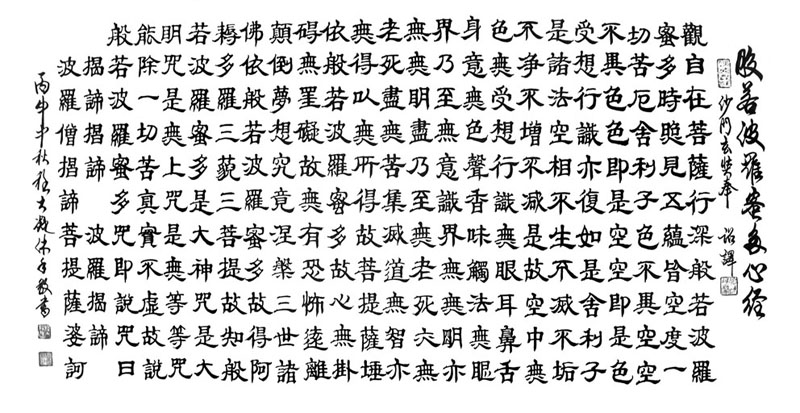 般若波羅蜜多心經
沙門玄奘奉 詔譯
觀自在菩薩行深般若波羅
蜜多時照見五蘊皆空度一
切苦厄舍利子色不異空空
不異色色即是空空即是色
受想行識亦復如是舍利子
是諸法空相不生不滅不垢
不净不增不減是故空中無
色無受想行識無眼耳鼻舌
身意無色聲香味觸法無眼
界乃至無意識界無無明亦
無無明盡乃至無老死亦無
老死盡無苦集滅道無智亦
無得以無所得故菩提薩埵
依般若波羅蜜多故心無掛
碍無罣礙故無有恐怖遠離
顛倒夢想究竟涅槃三世諸
佛依般若波羅蜜多故得阿
耨多羅三藐三菩提故知般
若波羅蜜多是大神咒是大
明咒是無上咒是無等等咒
能除一切苦真實不虛故說
般若波羅蜜多咒即說咒曰
揭諦揭諦 波羅揭諦
波羅僧揭諦菩提薩婆訶
中秋 書